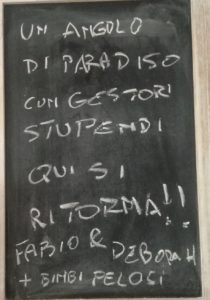 UN ANGOLO
DI PARADISO
CON GESTORI
STUPENDI
QUI SI
RITORNA!!
FABIO & DEBORAH
+ BIMBI PELOSI